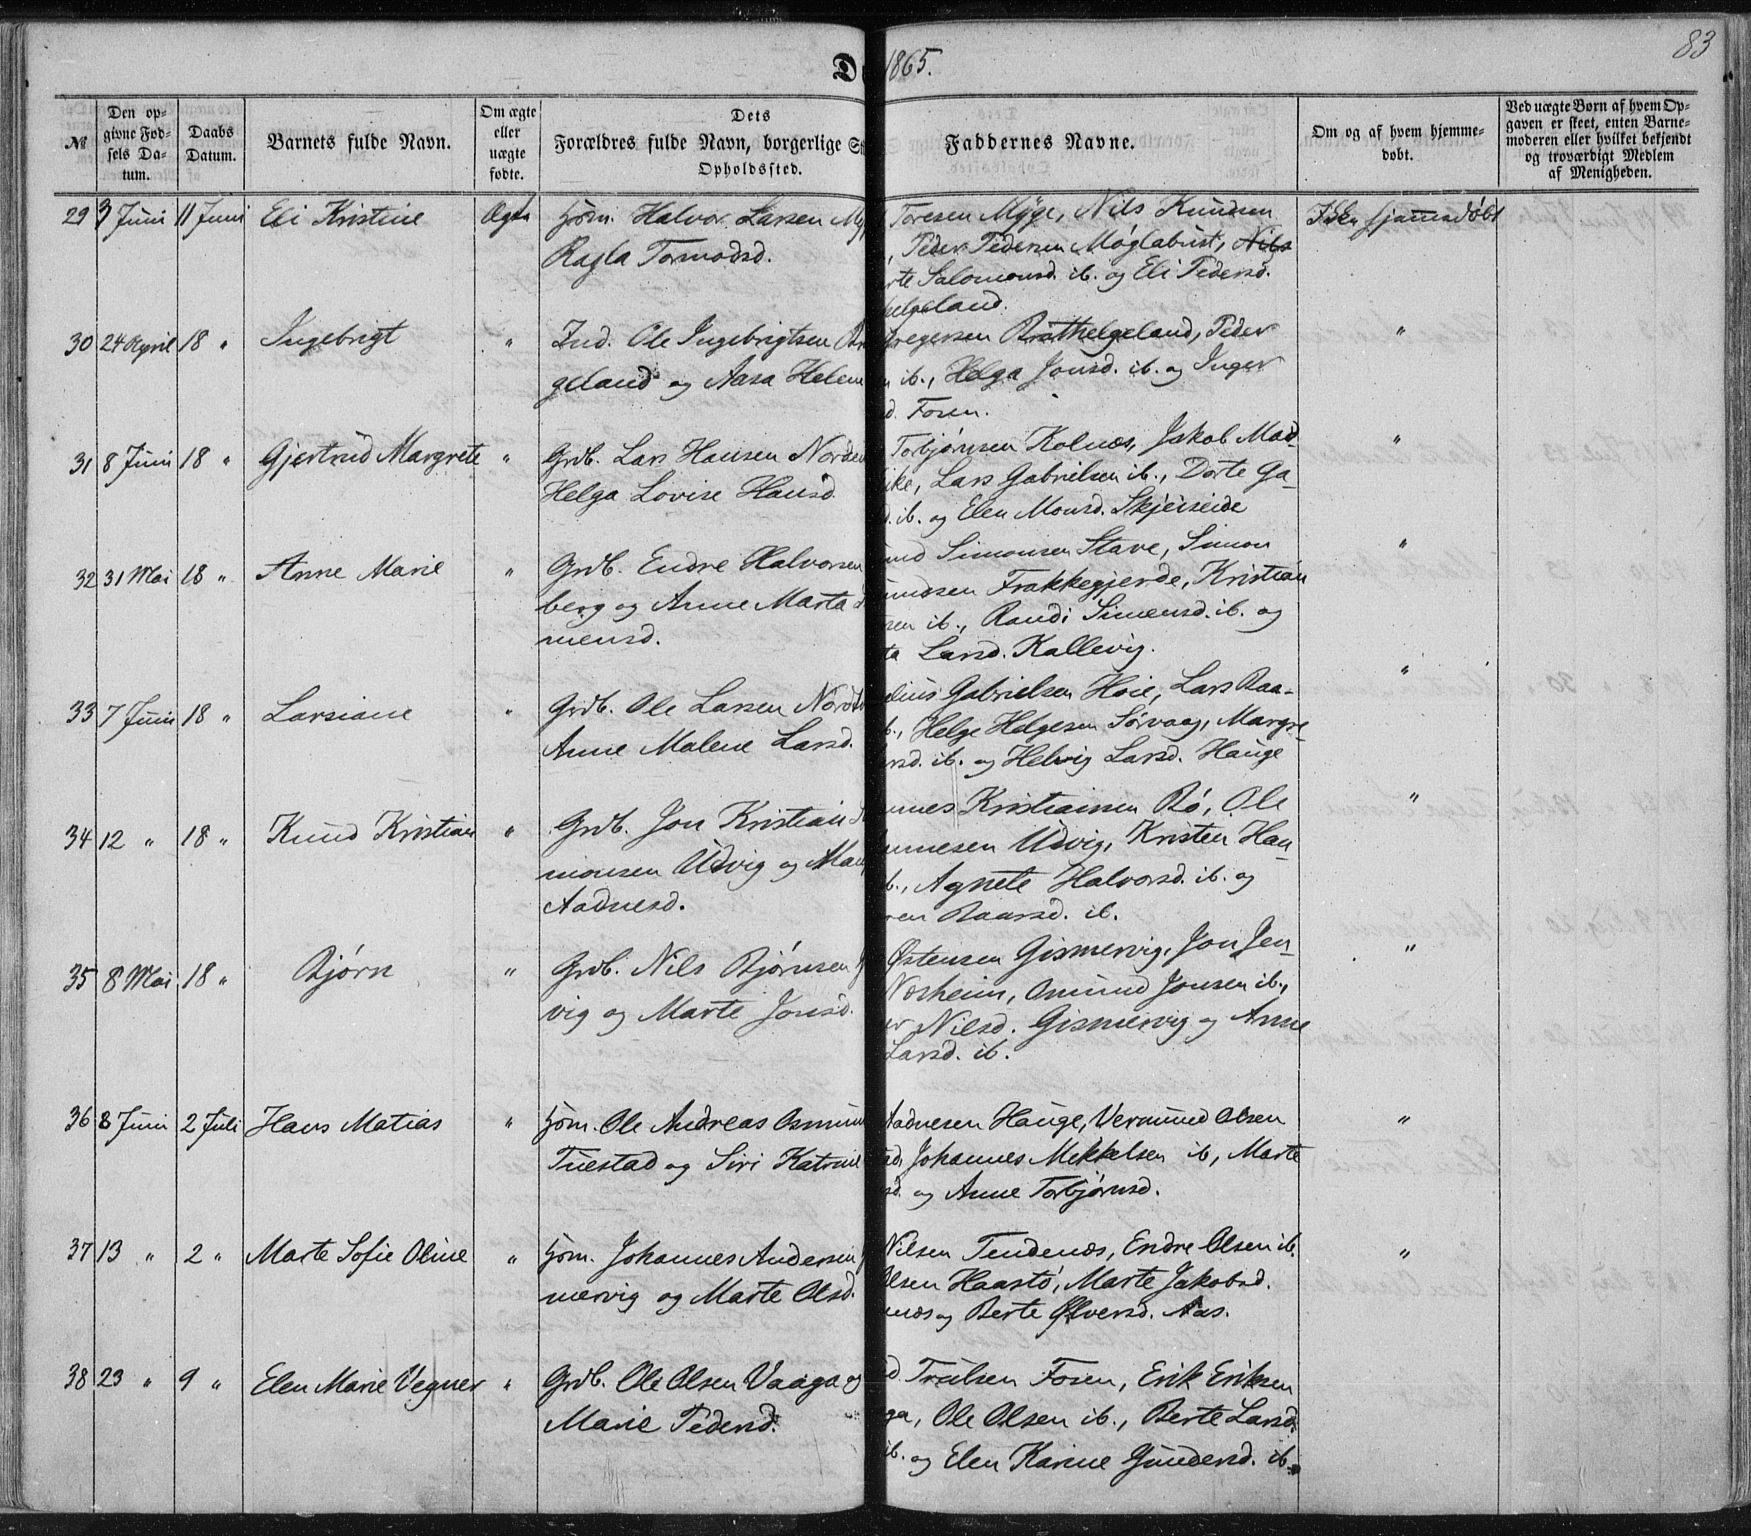 83
D 1865.
№
Den op-
givne Fød-
sels Da-
tum.
Daabs
Datum.
Barnets fulde Navn.
Om ægte
eller
uægte
fødte.
Dets
Forældres fulde Navn, borgerlige St
Opholdssted.
Faddernes Navne.
Om og af hvem hjemme-
døbt.
Ved uægte Børn af hvem Op-
gaven er skeet, enten Barne-
moderen eller hvilket bekjendt
og troværdigt Medlem
af Menigheden.
29 3 Juni 11 Juni Eli Kristine Ægte Hsm. Halvor Larsen My
Ragla Tormodsd.
Toresen Myge, Nils Knudsen
, Peder Pedersen Møglabust, Nils
rte Salomonsd. ib. og Eli Pedersd.
helgeland.
Ikke hjemmedøbt
30 24 April 18 " Ingebrigt " Ind. Ole Ingebrigtsen Br
geland og Aasa Helen
regersen Bratthelgeland, Peder
n ib., Helga Jonsd. ib. og Inger
d. Fosen.
"
31 8 Juni 18 " Gjertrud Margrete " Grdb. Lars Hansen Norde
Helga Lovise Hansd.
Torbjørnsen Kolnæs, Jakob Mad-
ike, Lars Gabrielsen ib., Dorte Ga-
d. ib. og Elen Monsd. Skjeiseide
"
32 31 Mai 18 " Anne Marie " Grdb. Endre Halvorsen
berg og Anne Marta S
mensd.
und Simonsen Stave, Simon
undsen Frakkegjerde, Kristian
sen ib., Randi Simensd. ib. og
ta Larsd. Kallevig.
"
33 7 Juni 18 " Larsiane " Grdb. Ole Larsen Nordb
Anne Malene Larsd.
elius Gabrielsen Høie, Lars Baa-
b., Helge Helgesen Sørvaag, Margre-
rsd. ib. og Helvig Larsd. Hauge
"
34 12 " 18 " Knud Kristian " Grdb. Jon Kristian S
monsen Udvig og Mar
Aadnesd.
nnes Kristiansen Bø, Ole
nnesen Udvig, Kristen Han-
b., Agnete Halvorsd. ib. og
ren Baarsd. ib.
"
35 8 Mai 18 " Bjørn " Grdb. Nils Bjørnsen G
vig og Marte Jonsd.
Østensen Gismervig, Jon Jen-
Norheim, Osmund Jonsen ib.,
er Nilsd. Gismervig og Anne
Larsd. ib.
"
36 8 Juni 2 Juli Hans Matias " Hsm. Ole Andreas Osmun
Tuestad og Siri Katrine
Aadnesen Hauge, Vermund Olsen
ad, Johannes Mekkelsen ib, Marte
sd. og Anne Torbjørnsd.
"
37 13 " 2 " Marte Sofie Oline " Hsm. Johannes Andersen G
mervig og Marte Olsd.
Nilsen Tendenæs, Endre Olsen ib.
Olsen Haastø, Marte Jakobsd.
næs og Berte Ølversd. Aas.
"
38 23 " 9 " Elen Marie Vegner " Grdb. Ole Olsen Vaaga og
Marie Pedersd.
d. Trulsen Fosen, Erik Eriksen
ga, Ole Olsen ib., Berte Larsd.
ib. og Elen Karine Gundersd. ib.